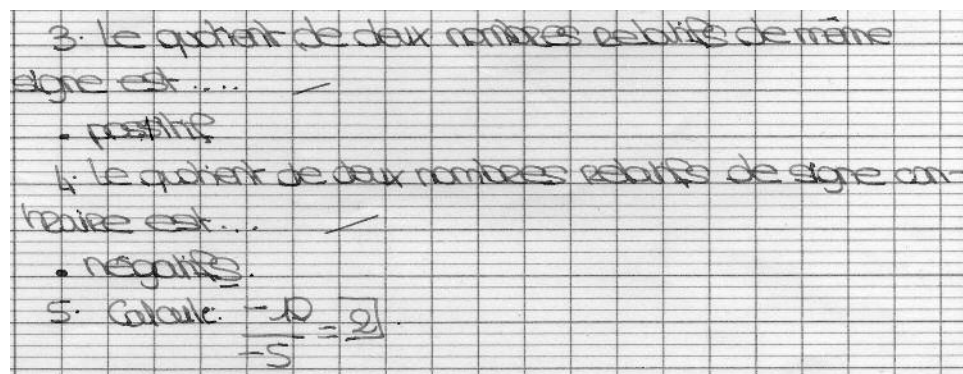 3. Le quotient de deux nombres relatifs de même
signe est ....
. positif
4. Le quotient de deux nombres relatifs de signe con-
traire est...
. négatifs.
5. Calcule: -10/-5 = 2